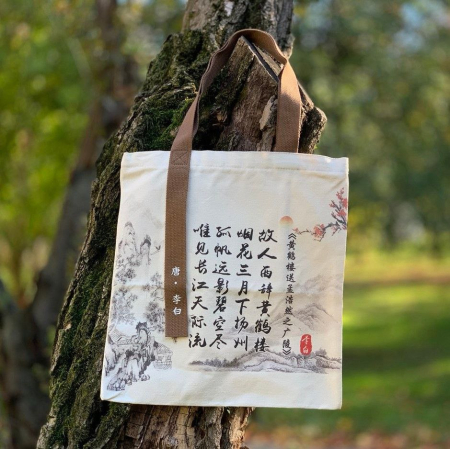 《黄鹤楼送孟浩然之广陵》
故人西辞黄鹤楼
烟花三月下扬州
孤帆远影碧空尽
唯见长江天际流
唐·李白
李白